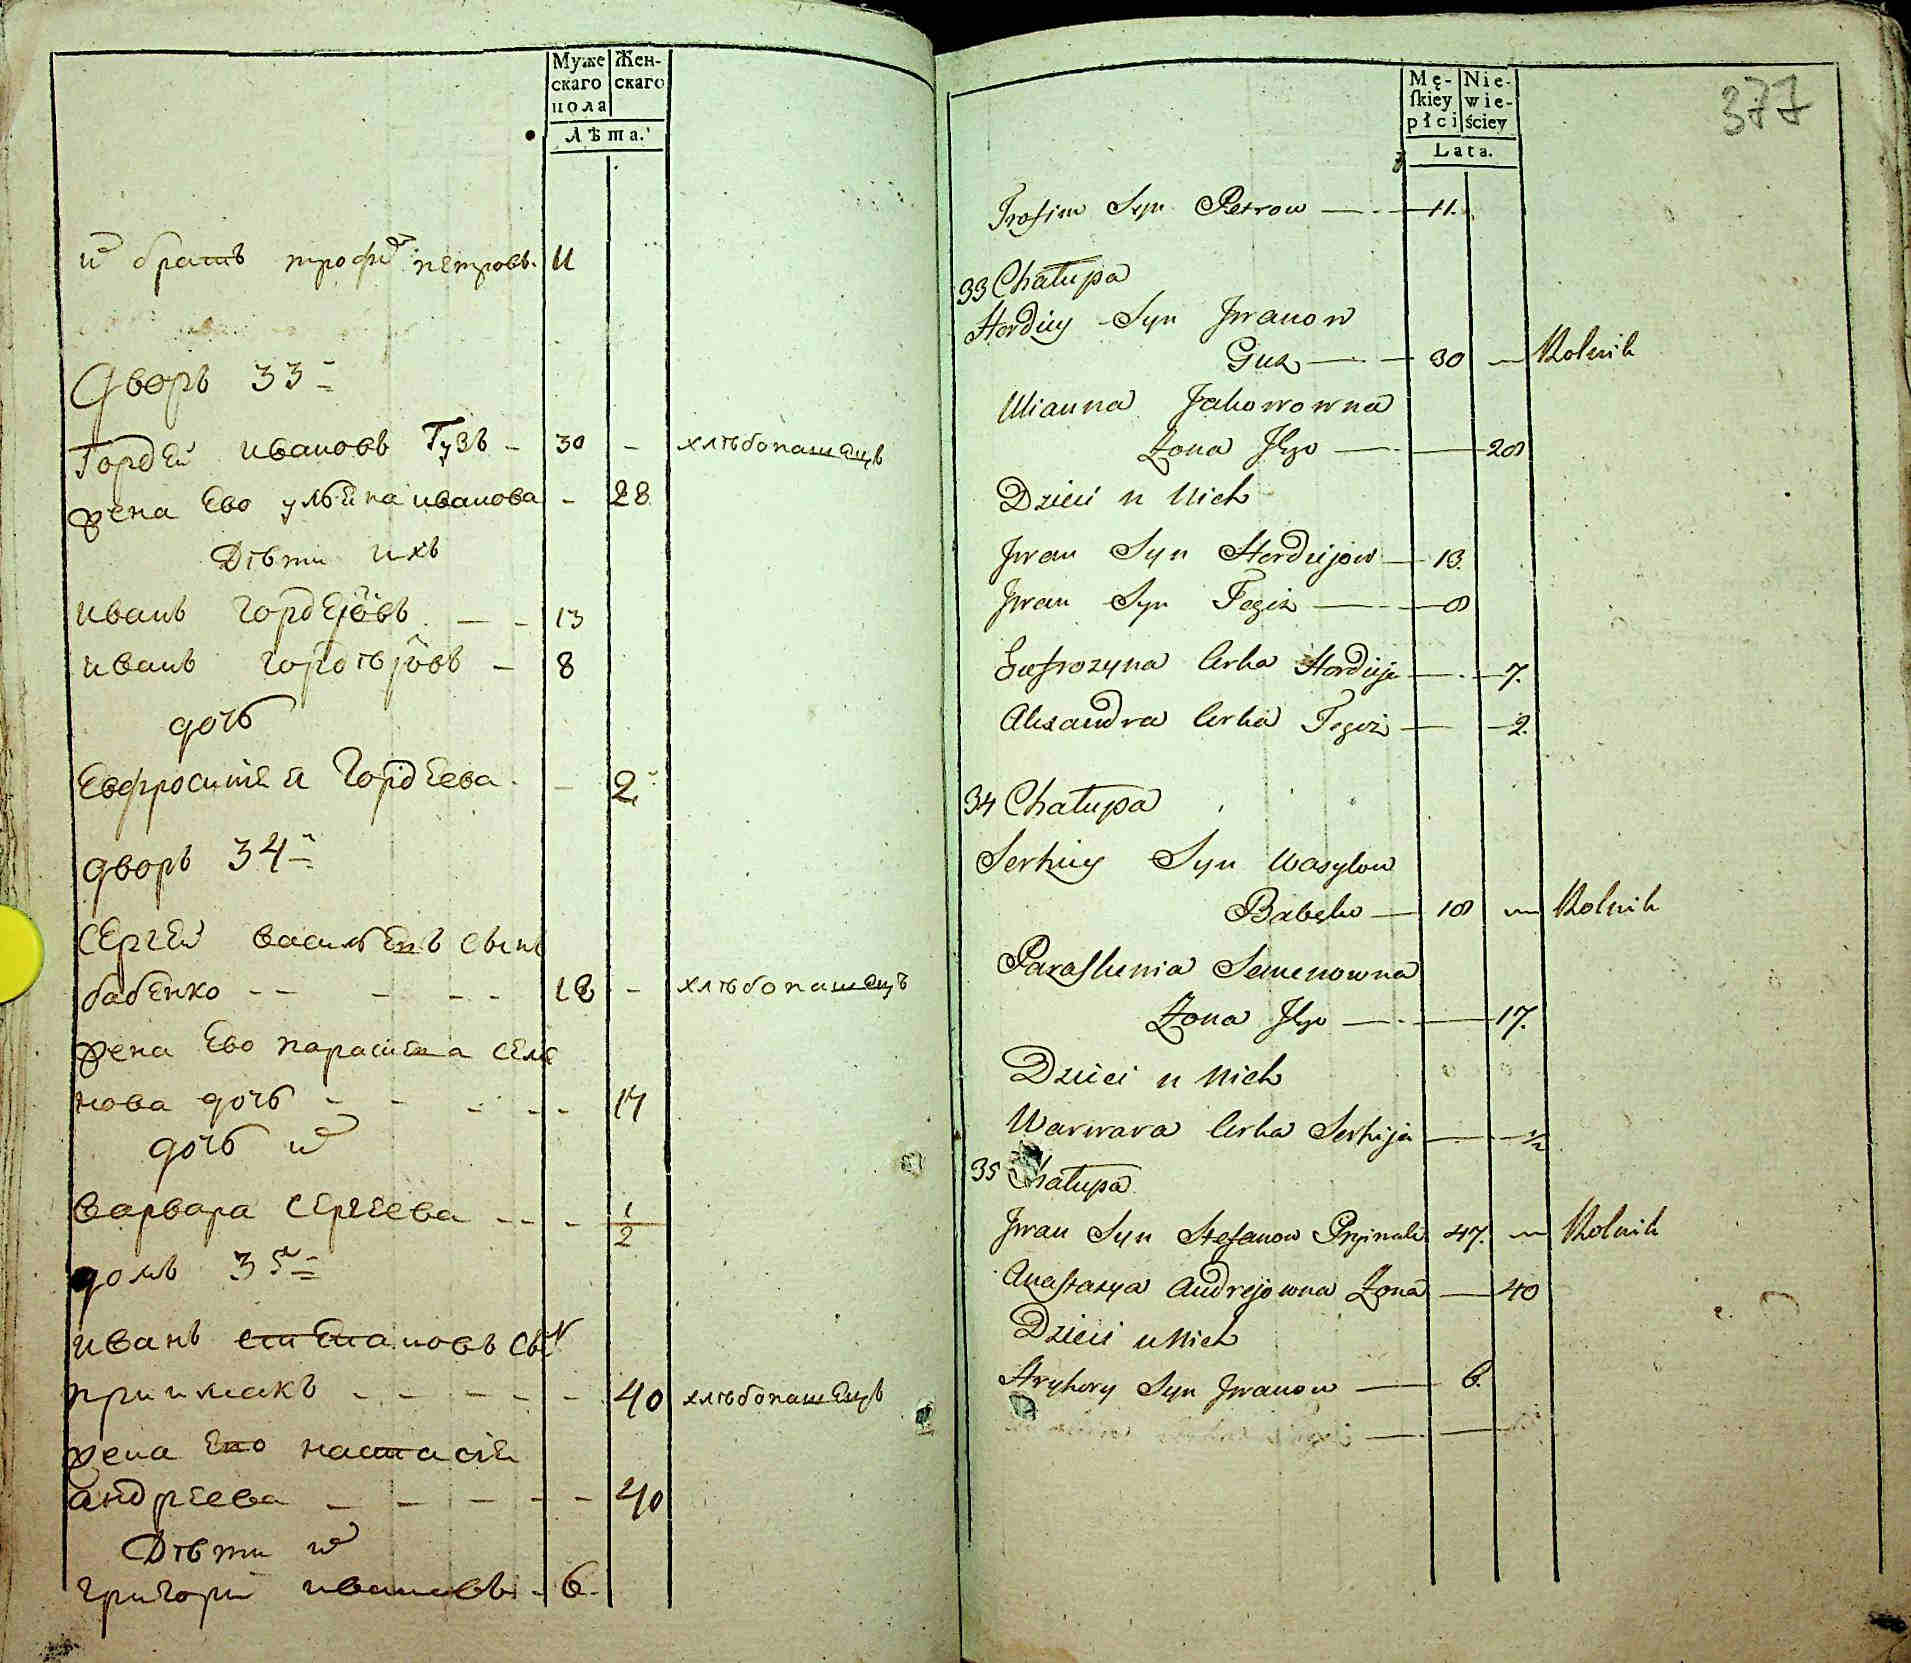 Муже
скаго
пола
Жен-
скаго
Лѣта.
их братъ трофим петровъ. 11
Дворъ 33й
Гордей ивановъ Гузъ - 30 - хлѣбопашецъ
жена Ево ульяна иванова - 28
Дѣти ихъ
иванъ гордеіовъ - - 13
иванъ гордѣіовъ - 8
дочь
Евфросинея Гордеева - 2
дворъ 34й
сергей васильевъ сынъ
бабенко - - - - - 18 - хлѣбопашецъ
жена Ево парасиева семе
нова дочь - - - - - 17
дочь их
варвара сергеева - - - 1/2
домъ 35й
иванъ степановъ сын
приимакъ - - - - - 40 хлѣбопашецъ
жена Ево настасія
андреева - - - - - 40
Дѣти их
григори ивановъ - 6.
377
Mę-
ſkiey
płci
Nie-
wie-
ściey
Lata.
Trofim Syn Petrow — 11.
33 Chałupa
Hordiey Syn Jwanow
Guz — 30 — Rolnik
Ulianna Jakowowna
Żona Jego — 28
Dzieci u Nich
Jwan Syn Hordiejow — 13.
Jwan Syn Tegiż — 8
Eufrozyna Corka Hordieja — 7.
Alexandra Corka Tegoż — 2.
34 Chałupa
Serhiey Syn Wasylow
Babenko — 18 — Rolnik
Paraskewia Semenowna
Żona Jego — 17.
Dzieci u Nich
Warwara Corka Serhija — 1/2
35 Chałupa
Jwan Syn Stefanow Pryimak 47. — Rolnik
Anastazya Andrejowna Żona — 40
Dzieci u Nich
Hryhory Syn Jwanow — 6.